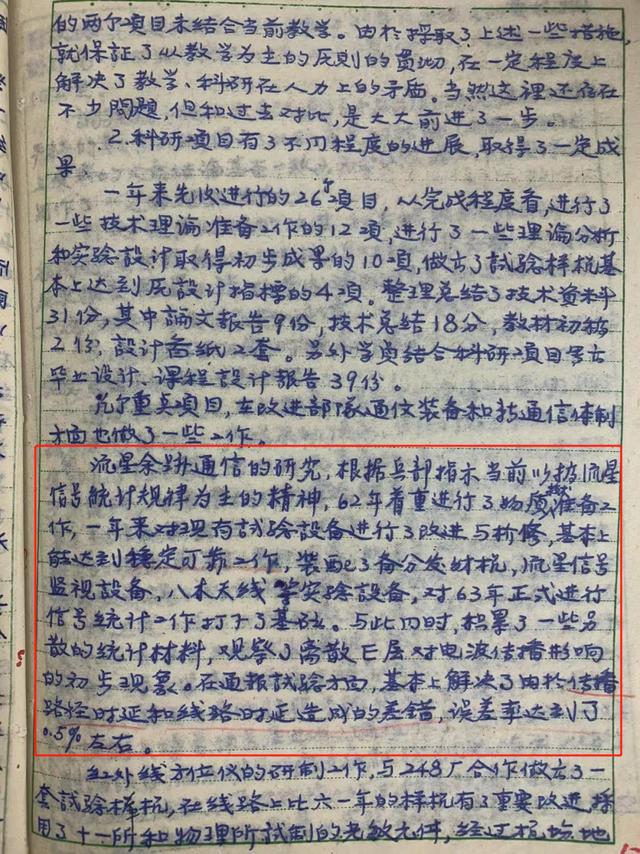 的两个项目未结合当前教学。由於採取了上述一些措施,
就保証了从教学为主的原则的贯彻,在一定程度上
解决了教学、科研在人力上的矛盾。当然这裡还存在
不少問題,但和过去对比,是大大前进了一步。
2.科研項目有了不同程度的进展,取得了一定成
果
一年来先后进行的26个項目,从完成程度看,进行了
一些技术理論准备工作的12項,进行了一些理論分析
和实驗設計取得初步成果的10項,做出了試驗样机基
本上达到原設計指標的4項。整理总结了技术資料
31份,其中論文報告9份,技术总结18分,教材初稿
2份,設計啚紙2套。另外学員结合科研項目写出
毕业设计、课程設計報告39份。
几个重点項目,在改进部隊通信装备和
方面也做了一些工作。
流星余跡通信的研究,根据兵部指示当前以搞流星
信号統計規律为主的精神,62年着重进行了物质准备工
作,一年来对現有試驗設备进行了改进与检修,基本上
能达到穩定可靠工作,装配了备分发射机,流星信号
監視設备,八木天线等实驗設备,对63年正式进行
信号統計工作打下了基础。与此同时,积累了一些另
散的統計材料,观察了离散E层对电波传播形响
的初步現象。在通報試驗方面,基本上解决了由於传播
路径时延和线路时延造成的差错,误差率达到了
0.5%左右。
红外线方位仪的研制工作,与248厂合作做出了一
套試驗样机,在线路上比六一年的样机有了重要改进,採
用了十一所和物理所試制的光敏元件,经过机場地